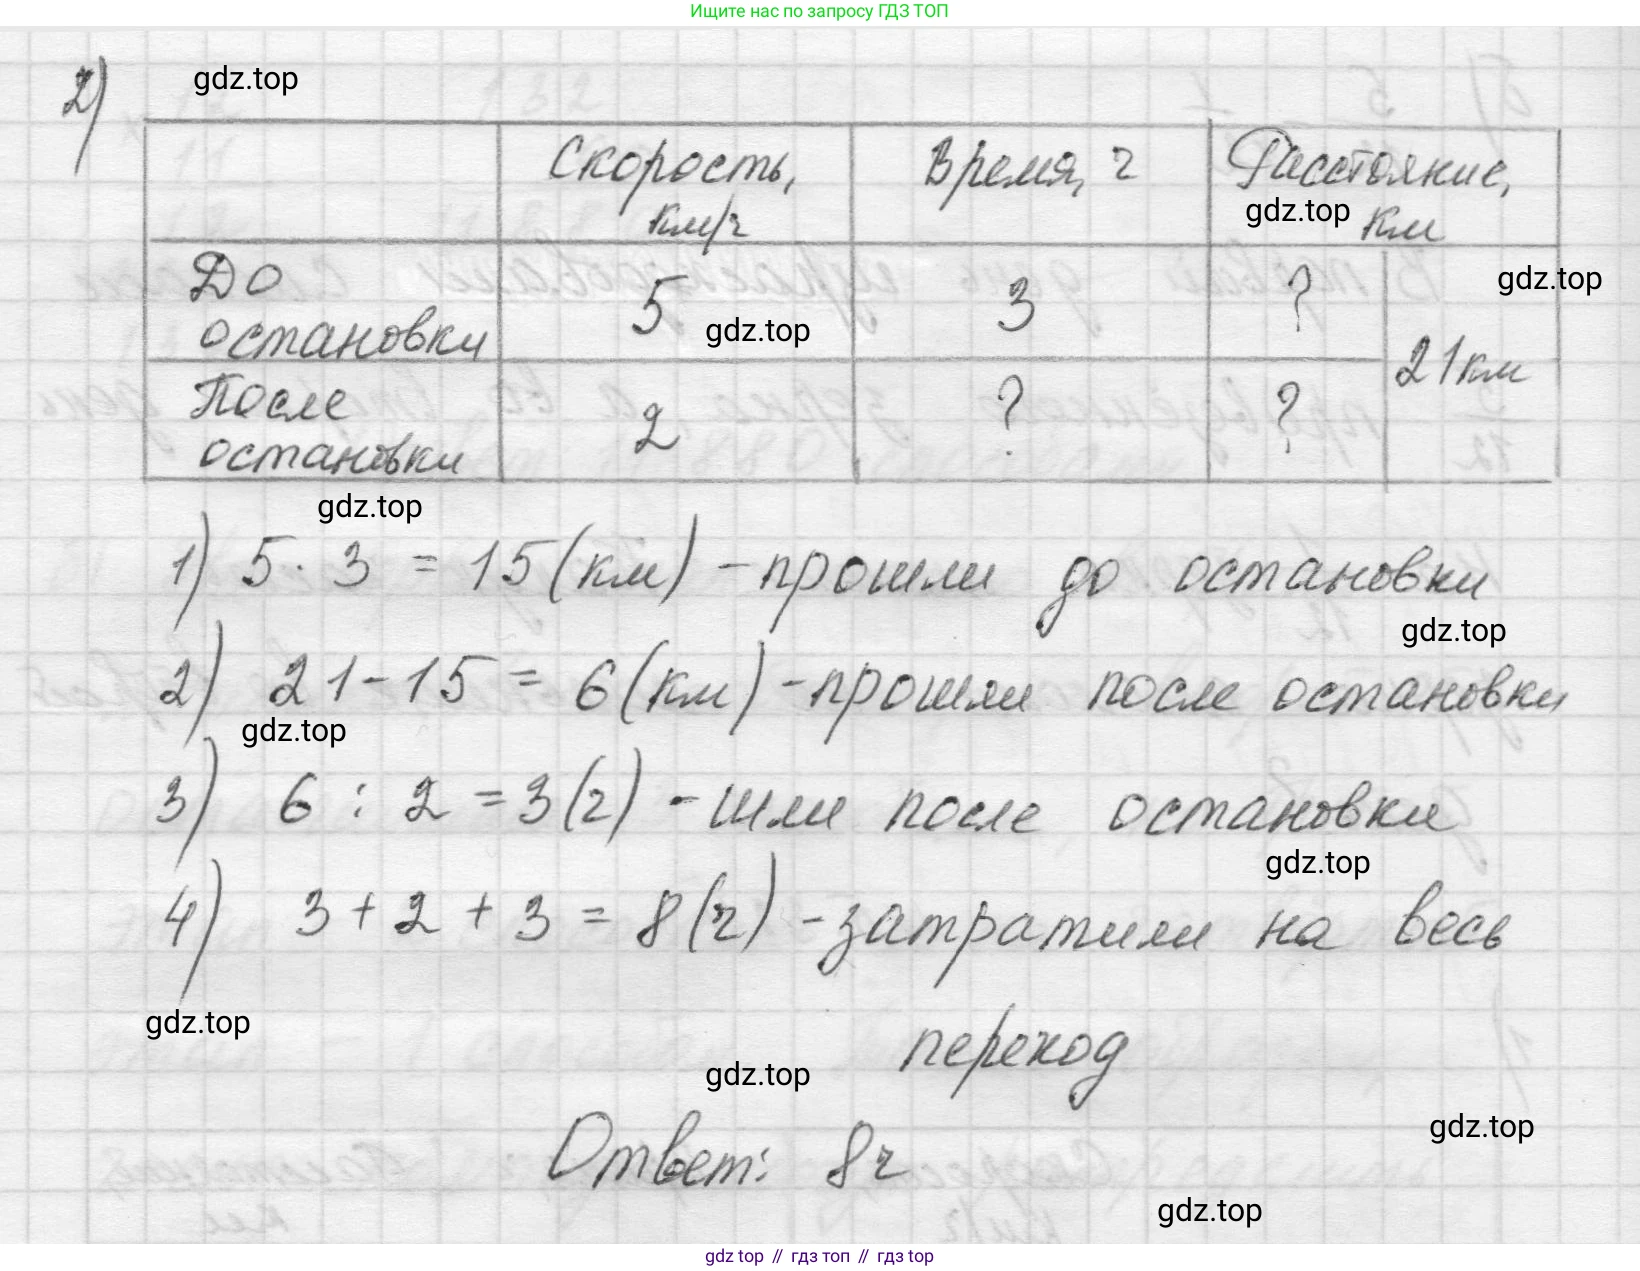 Ищите нас по запросу ГДЗ ТОП
2)
gdz.top
Скорость, км/ч
Время, ч
Расстояние, км
gdz.top
До остановки
5
3
?
21км
gdz.top
gdz.top
После остановки
2
?
?
gdz.top
1) 5 · 3 = 15 (км) - прошли до остановки
gdz.top
2) 21 - 15 = 6 (км) - прошли после остановки
gdz.top
3) 6 : 2 = 3 (ч) - шли после остановки
gdz.top
4) 3 + 2 + 3 = 8 (ч) - затратили на весь
gdz.top
переход
gdz.top
gdz.top
Ответ: 8ч
gdz.top
gdz top // гдз топ // гдз top